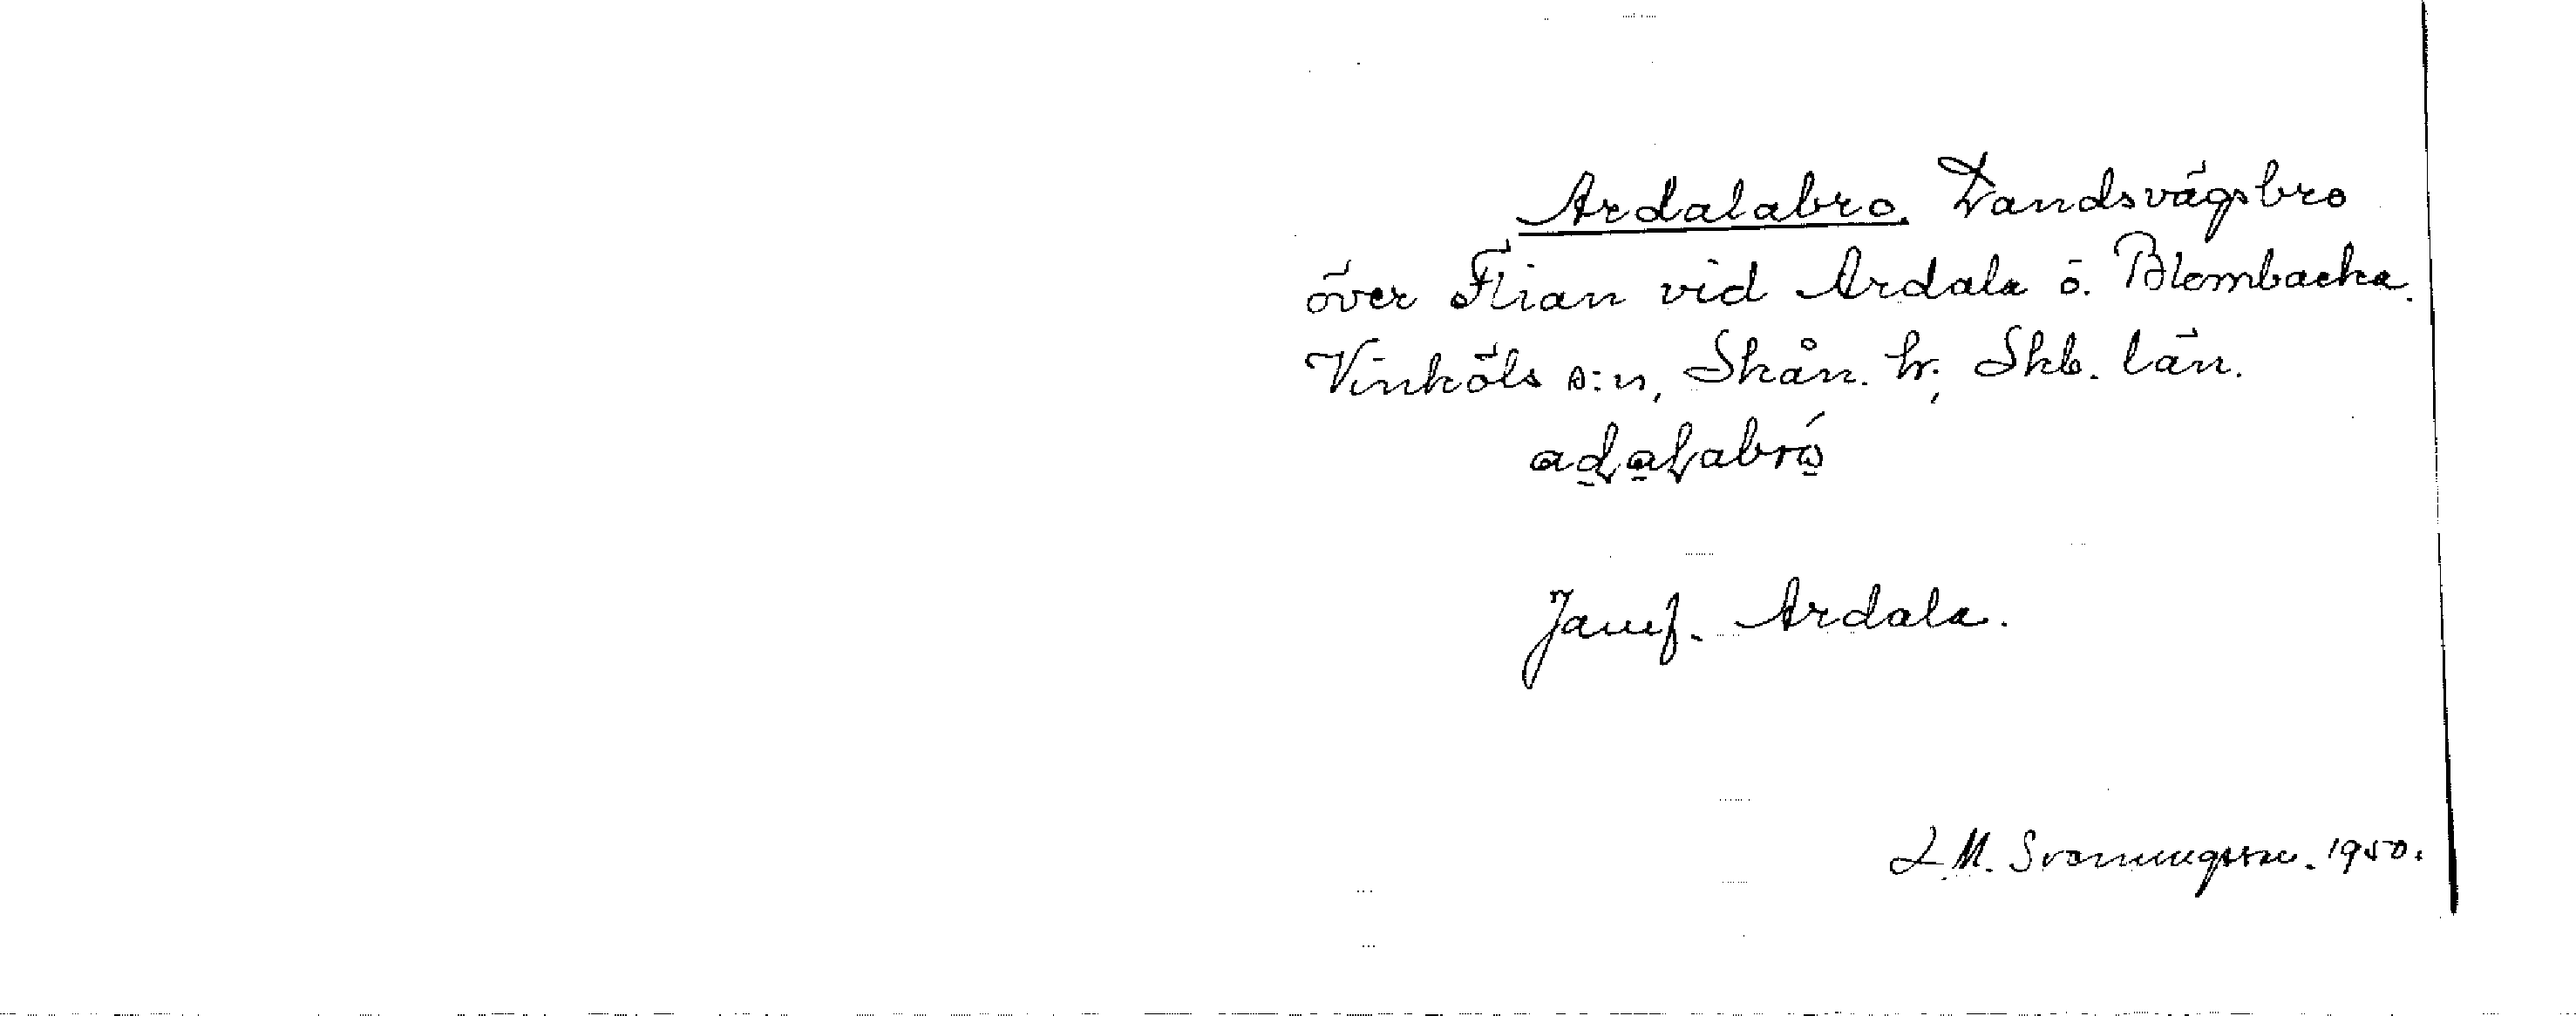 Ardalabro. Landsvägsbro
över Flian vid Ardala o. Blombacka.
Vinköls s:n, Skån. hr, Skb. län.
Jamf. Ardala.
L.M. Svanungsson. 1950.